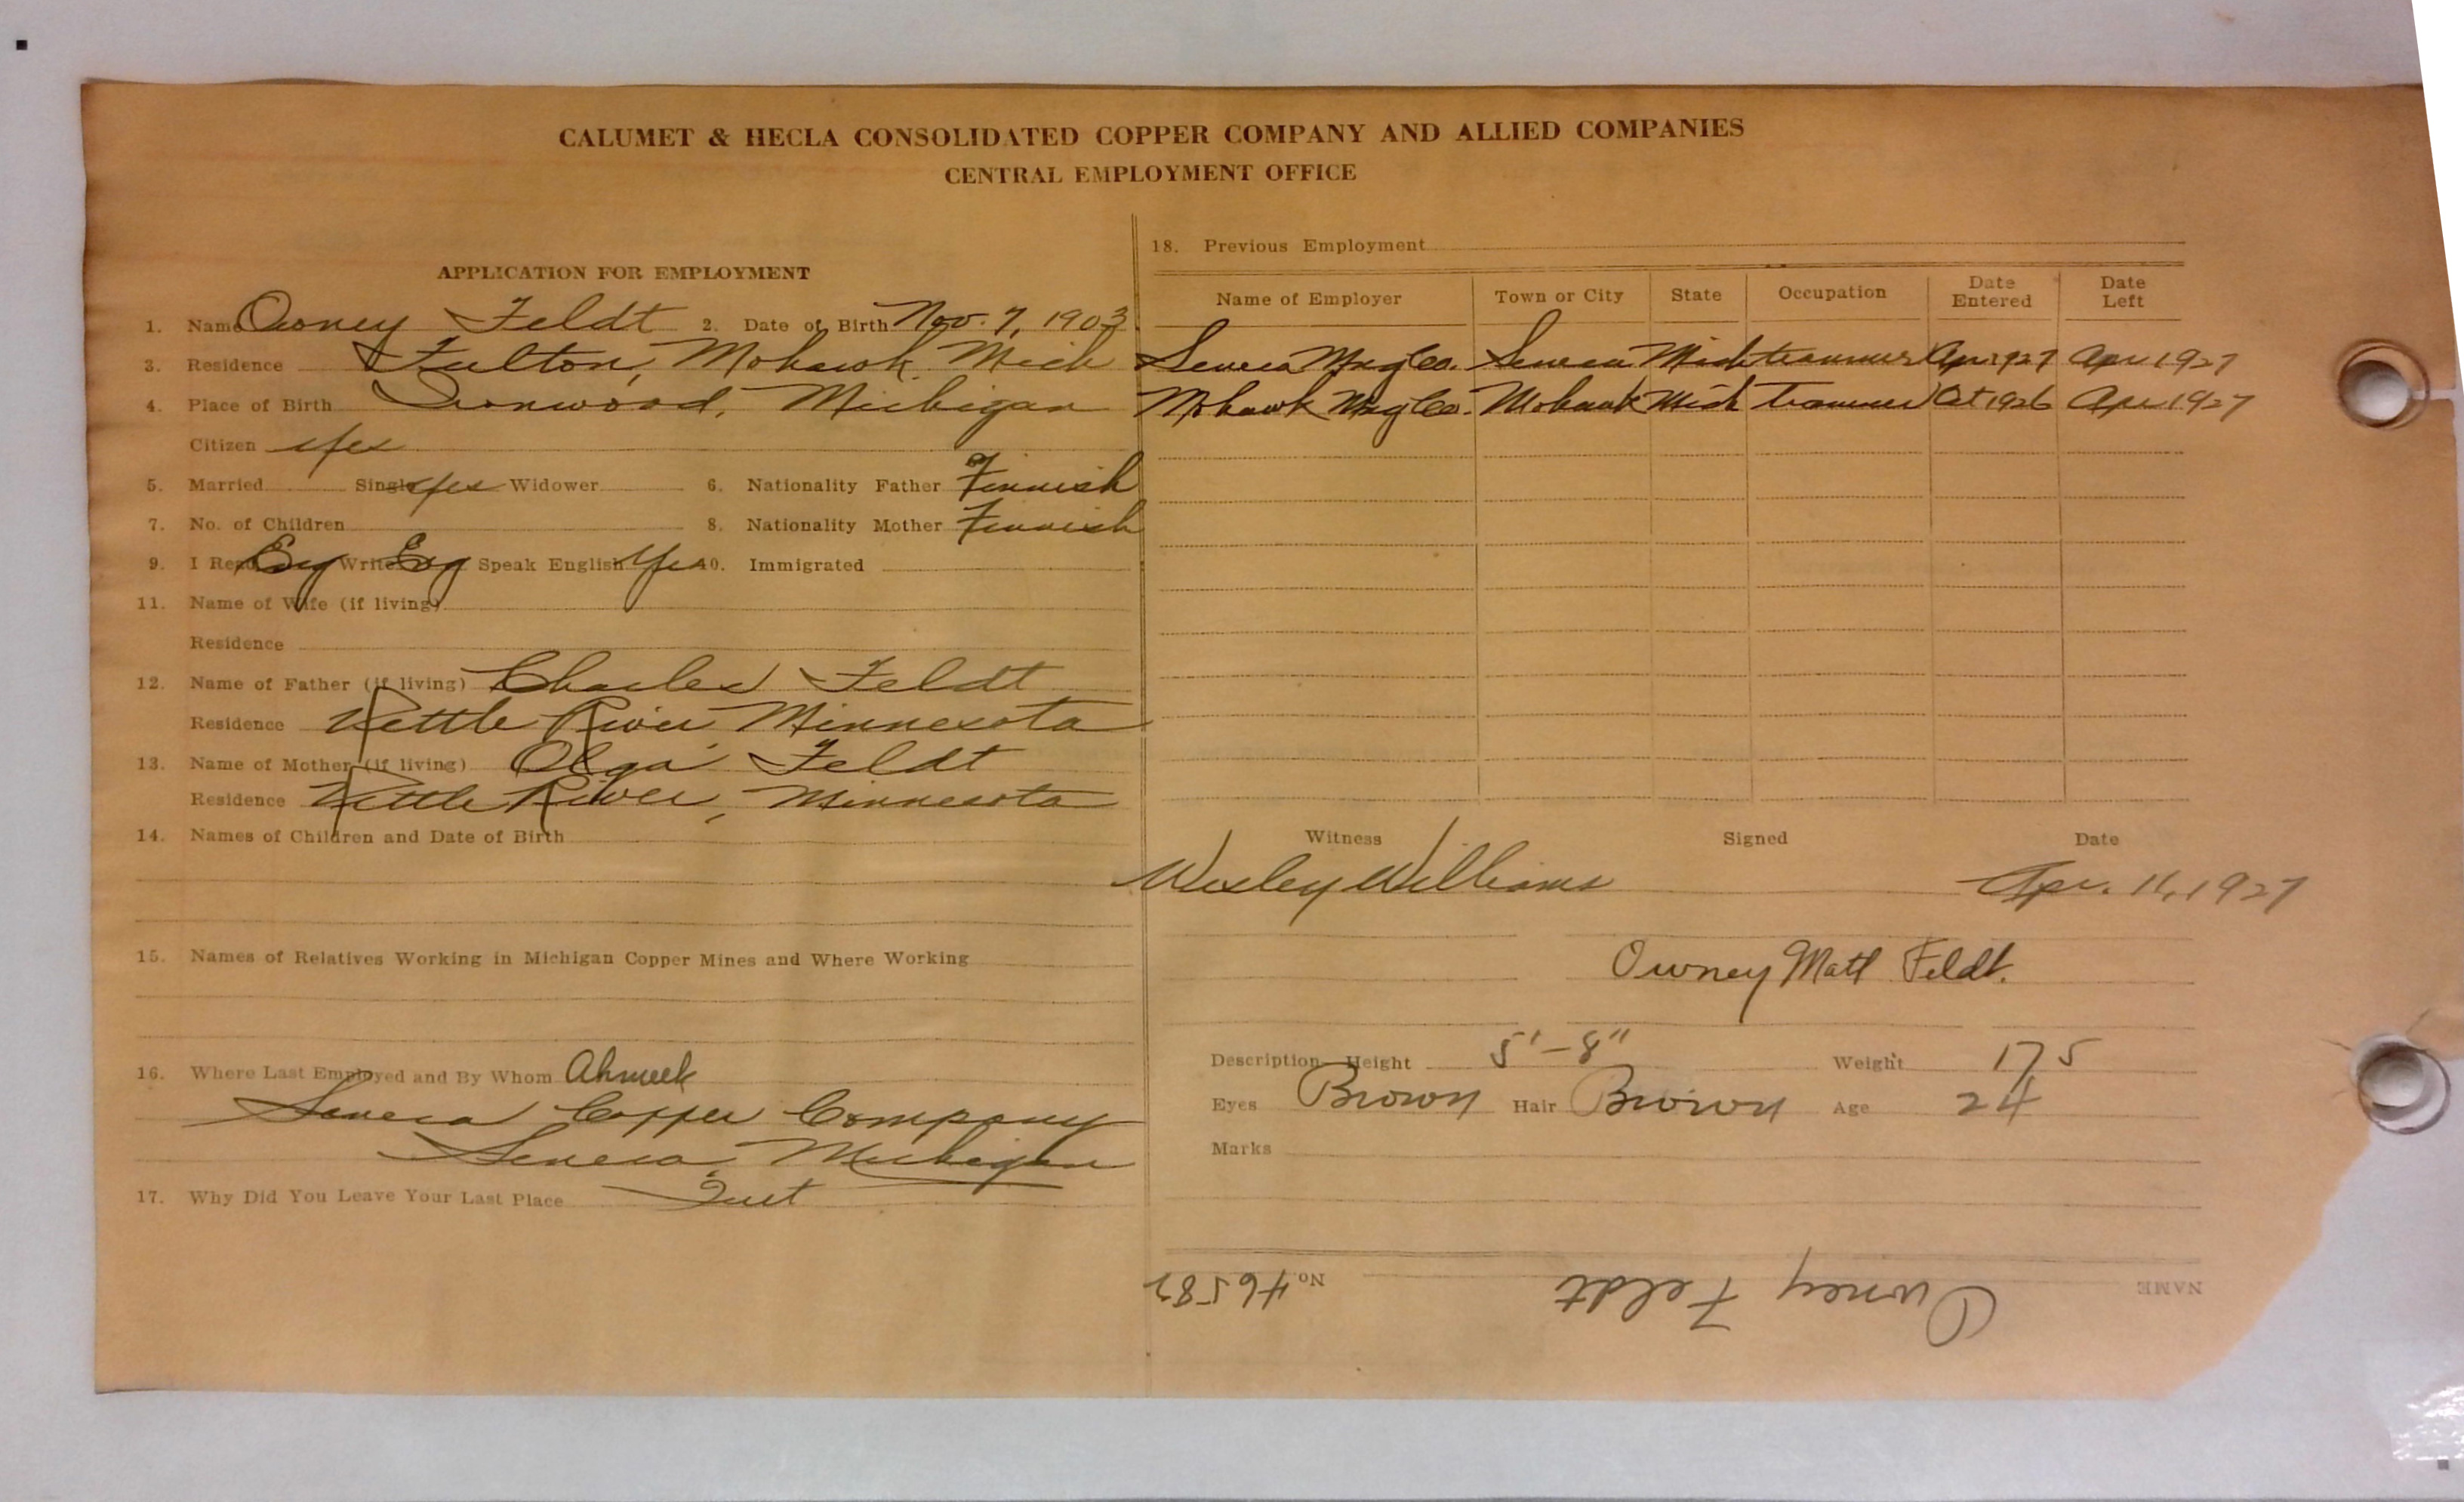 CALUMET & HECLA CONSOLIDATED COPPER COMPANY AND ALLIED COMPANIES
CENTRAL EMPLOYMENT OFFICE
APPLICATION FOR EMPLOYMENT
1. Name Owney Feldt 2. Date of Birth Nov. 7, 1903
3. Residence Fulton, Mohawk Mich
4. Place of Birth Ironwood, Michigan
Citizen Yes
5. Married Single Yes Widower 6. Nationality Father Finnish
7. No. of Children 8. Nationality Mother Finnish
9. I Read Eng Write Eng Speak English Yes 10. Immigrated
11. Name of Wife (if living)
Residence
12. Name of Father (if living) Charles Feldt
Residence Kettle River Minnesota
13. Name of Mother (if living) Olga Feldt
Residence Kettle River, Minnesota
14. Names of Children and Date of Birth
15. Names of Relatives Working in Michigan Copper Mines and Where Working
16. Where Last Employed and By Whom Ahmeek
Seneca Copper Company
Seneca, Michigan
17. Why Did You Leave Your Last Place Quit
18. Previous Employment
Name of Employer Town or City State Occupation Date Entered Date Left
Seneca Mng Co. Seneca Mich trammer Apr 1927 Apr 1927
Mohawk Mng Co. Mohawk Mich Trammer Oct 1926 Apr 1927
Witness Signed Date
Wesley Williams Apr. 11, 1927
Owney Matt Feldt.
Description Height 5'-8" Weight 175
Eyes Brown Hair Brown Age 24
Marks
NAME Owney Feldt No. 46582